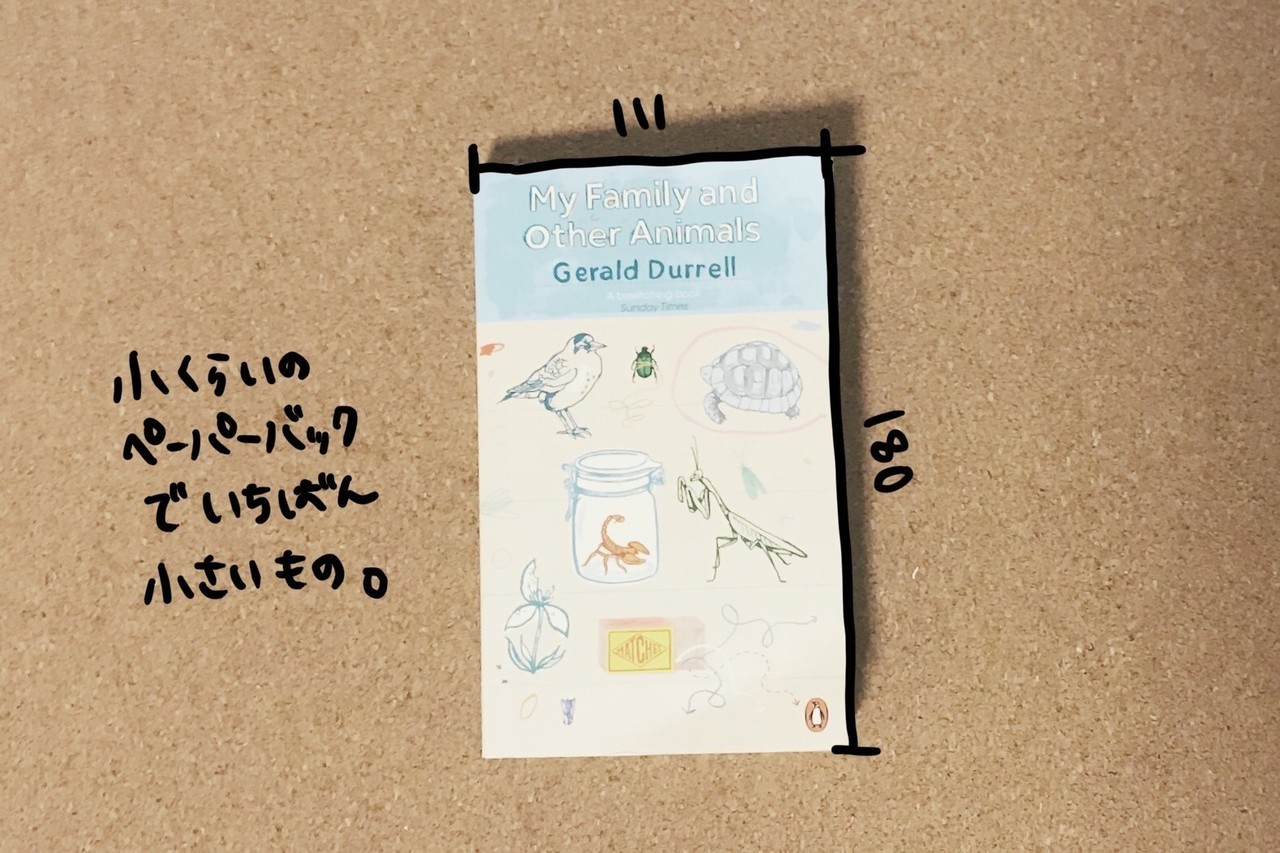 111
My Family and
Other Animals
Gerald Durrell
A bewitching book
Sunday Times
180
小くらいの
ペーパーバック
でいちばん
小さいもの。
MATCHES